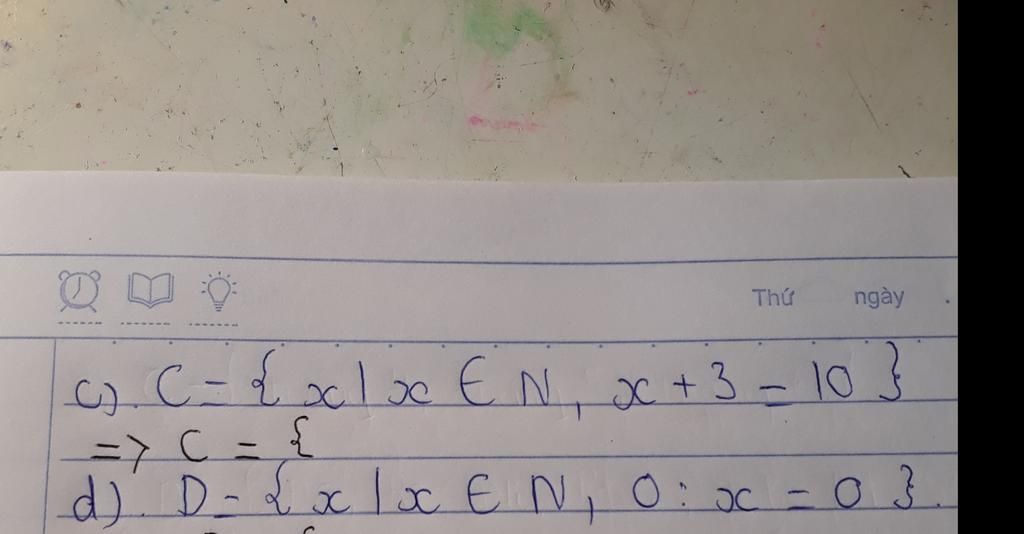 Thứ ngày .
c). C = { x | x ∈ N, x + 3 = 10 }
=> C = {
d). D = { x | x ∈ N, 0 : x = 0 }.